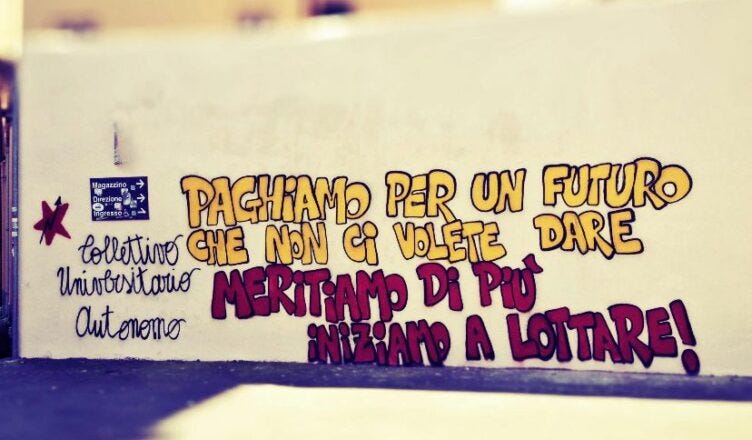 Magazzino
Direzione
Ingresso
Collettivo
Universitario
Autonomo
PAGHIAMO PER UN FUTURO
CHE NON CI VOLETE DARE
MERITIAMO DI PIÙ
INIZIAMO A LOTTARE!